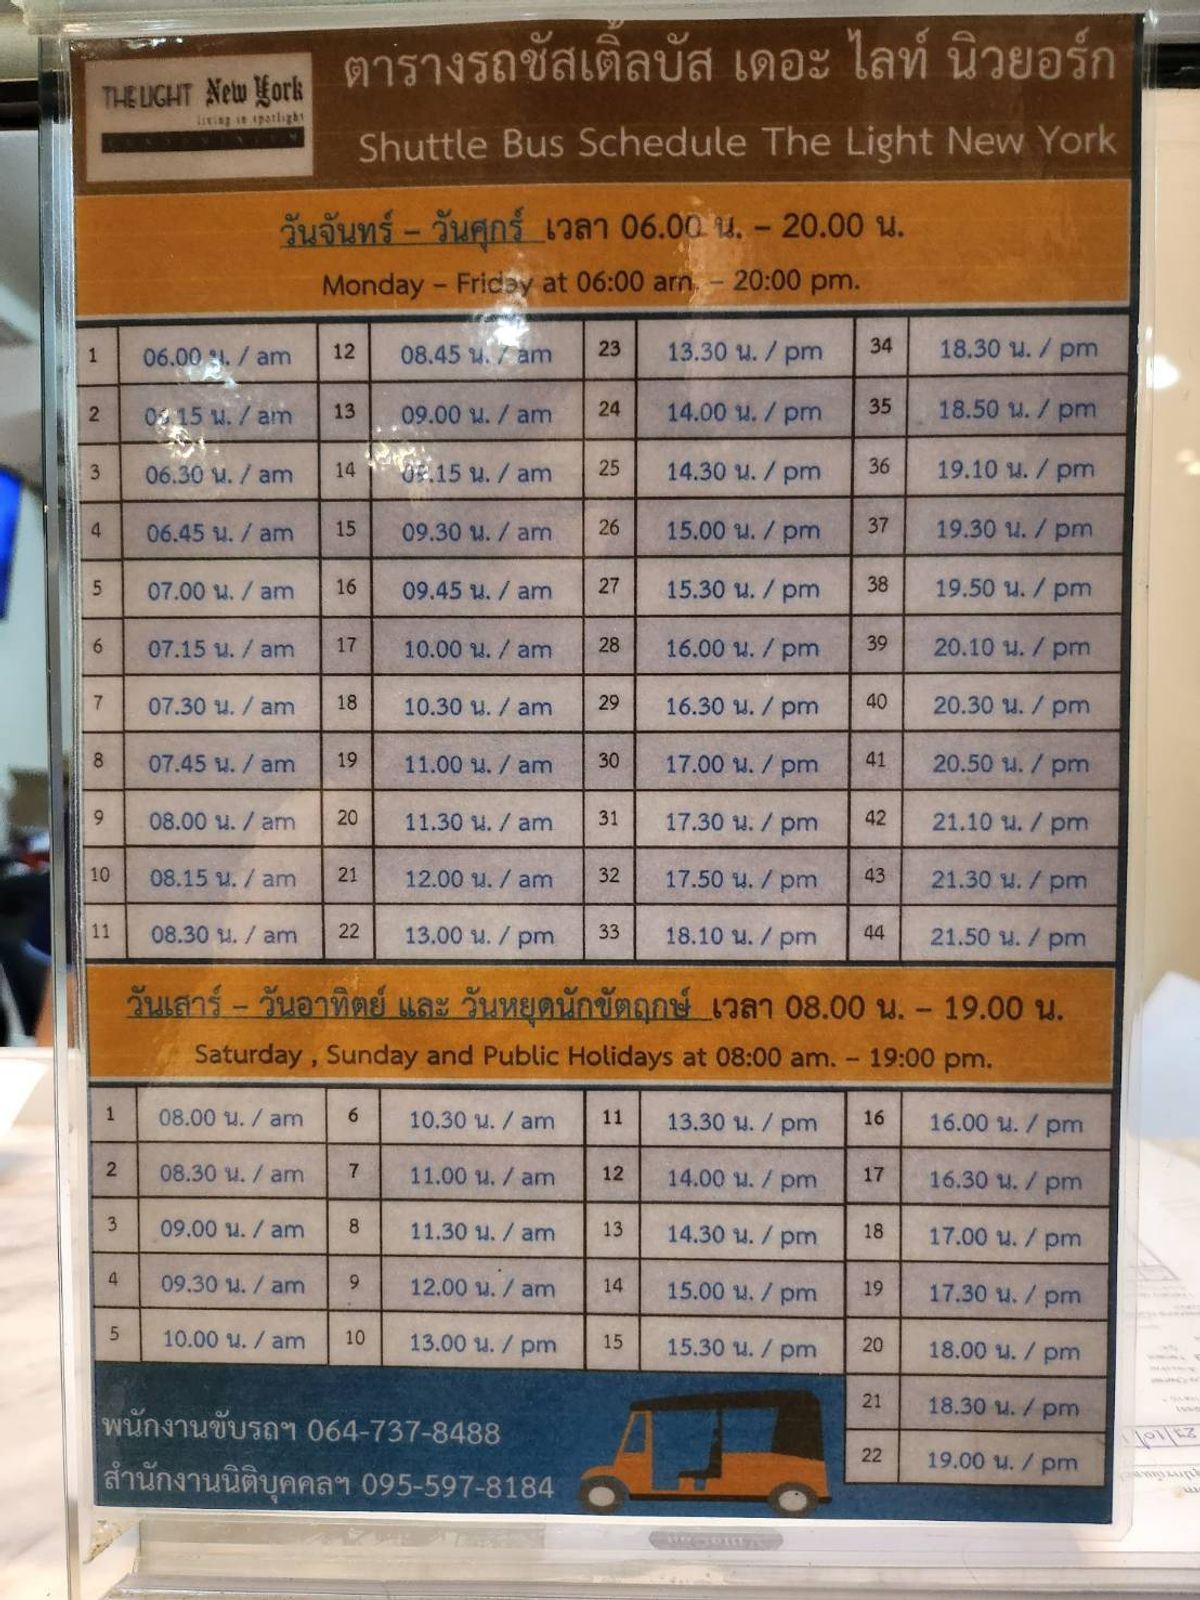 THE LIGHT New York
living in spotlight
CONDOMINIUM
ตารางรถชัสเติ้ลบัส เดอะ ไลท์ นิวยอร์ก
Shuttle Bus Schedule The Light New York
วันจันทร์ – วันศุกร์ เวลา 06.00 น. – 20.00 น.
Monday – Friday at 06:00 am. – 20:00 pm.
1 06.00 น. / am 12 08.45 น. / am 23 13.30 น. / pm 34 18.30 น. / pm
2 06.15 น. / am 13 09.00 น. / am 24 14.00 น. / pm 35 18.50 น. / pm
3 06.30 น. / am 14 09.15 น. / am 25 14.30 น. / pm 36 19.10 น. / pm
4 06.45 น. / am 15 09.30 น. / am 26 15.00 น. / pm 37 19.30 น. / pm
5 07.00 น. / am 16 09.45 น. / am 27 15.30 น. / pm 38 19.50 น. / pm
6 07.15 น. / am 17 10.00 น. / am 28 16.00 น. / pm 39 20.10 น. / pm
7 07.30 น. / am 18 10.30 น. / am 29 16.30 น. / pm 40 20.30 น. / pm
8 07.45 น. / am 19 11.00 น. / am 30 17.00 น. / pm 41 20.50 น. / pm
9 08.00 น. / am 20 11.30 น. / am 31 17.30 น. / pm 42 21.10 น. / pm
10 08.15 น. / am 21 12.00 น. / am 32 17.50 น. / pm 43 21.30 น. / pm
11 08.30 น. / am 22 13.00 น. / pm 33 18.10 น. / pm 44 21.50 น. / pm
วันเสาร์ – วันอาทิตย์ และ วันหยุดนักขัตฤกษ์ เวลา 08.00 น. – 19.00 น.
Saturday , Sunday and Public Holidays at 08:00 am. – 19:00 pm.
1 08.00 น. / am 6 10.30 น. / am 11 13.30 น. / pm 16 16.00 น. / pm
2 08.30 น. / am 7 11.00 น. / am 12 14.00 น. / pm 17 16.30 น. / pm
3 09.00 น. / am 8 11.30 น. / am 13 14.30 น. / pm 18 17.00 น. / pm
4 09.30 น. / am 9 12.00 น. / am 14 15.00 น. / pm 19 17.30 น. / pm
5 10.00 น. / am 10 13.00 น. / pm 15 15.30 น. / pm 20 18.00 น. / pm
21 18.30 น. / pm
22 19.00 น. / pm
พนักงานขับรถฯ 064-737-8488
สำนักงานนิติบุคคลฯ 095-597-8184